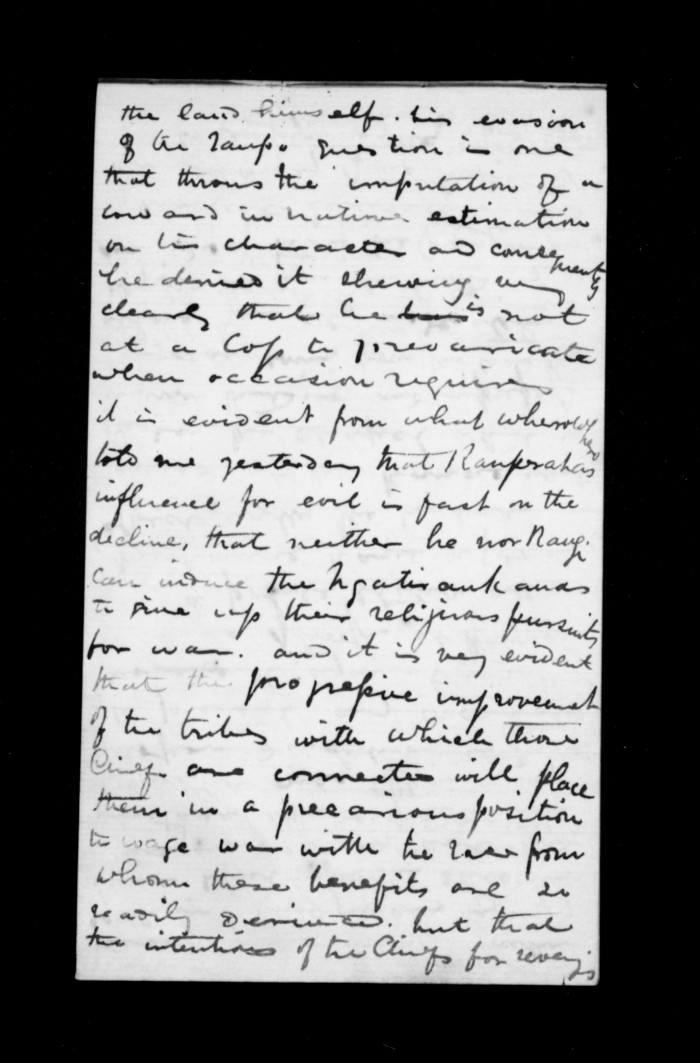 the land himself. his evasion
of the Taupo question is one
that throws the imputation of a
coward in native estimation
on his character and consequently
he denied it shewing very
clearly that he is not
at a loss to prevaricate
when occasion requires
it is evident from what Whero
told me yesterday that Rauperahas
influence for evil is fast on the
decline, that neither he nor Rangi
can induce the Ngatiraukauas
to give up their religious pursuits
for war. and it is very evident
that the progressive improvement
of the tribes with which those
Chiefs are connected will place
them in a precarious position
to wage war with the race from
whom these benefits are so
readily derived. but that
the intentions of the Chiefs for revenge